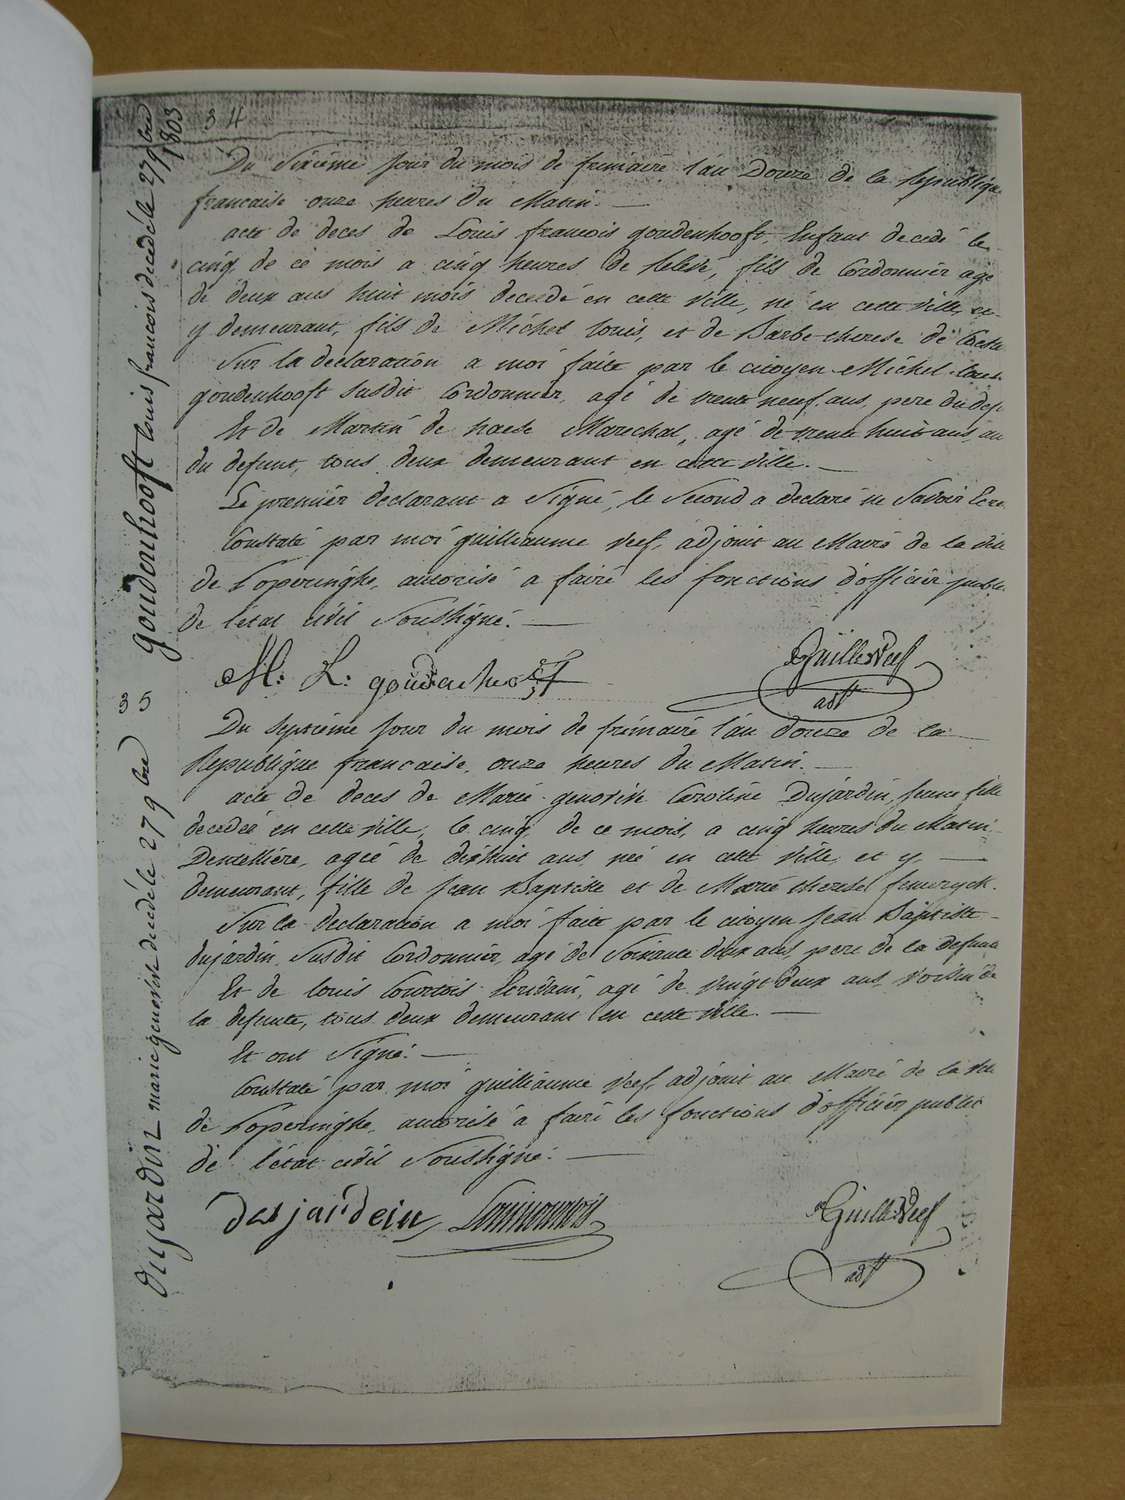 34
Du Sixième jour du mois de frimaire l'an Douze de la République
francaise onze heures du Matin.
acte de deces de Louis francois goudenhooft, Enfant decedé le
cinq de ce mois a cinq heures de relevé, fils de Cordonnier agé
de deux ans huit mois decedé en cette ville, né en cette ville, et
y demeurant, fils de Michel Louis, et de Barbe therese de
Sur la declaration a moi faite par le citoyen Michel Louis
goudenhooft Susdit Cordonnier, agé de trente neuf ans, pere du def.
Et de Martin de haese Marechal, agé de trente huit ans,
du defunt, tous deux demeurant en cette ville.
Le premier declarant a Signé, le Second a declaré ne Savoir Ecre
Constaté par moi guilliaume Veef, adjoint au Maire de la ville
de Poperinghe, autorisé a faire les fonctions d'officier public
de l'état civil Soussigné.
M: L: goudenhooft
Guille Veef
adjt
goudenhooft louis francois decedé le 27 9bre 1803
35
Du Septième jour du mois de frimaire l'an douze de la
Republique francaise, onze heures du Matin.
acte de deces de Marie genovive Caroline Dujardin, jeune fille
decedée en cette ville, le cinq de ce mois, a cinq heures du Matin
Dentellière, agée de dixhuit ans, née en cette ville et y
demeurant, fille de Jean Baptiste et de Marie therese
Sur la declaration a moi faite par le citoyen Jean Baptiste
dujardin Susdit Cordonnier, agé de Soixante deux ans, pere de la defunte
Et de louis Courtois Ecrivain, agé de vingt deux ans voisin de
la defunte, tous deux demeurant en cette ville.
Et ont Signé.
Constaté par moi guilliaume Veef, adjoint au Maire de la ville
de Poperinghe, autorisé a faire les fonctions d'officier public
de l'état civil Soussigné.
desjardein
Guille Veef
adjt
Dujardin marie genevive decedé le 27 9bre